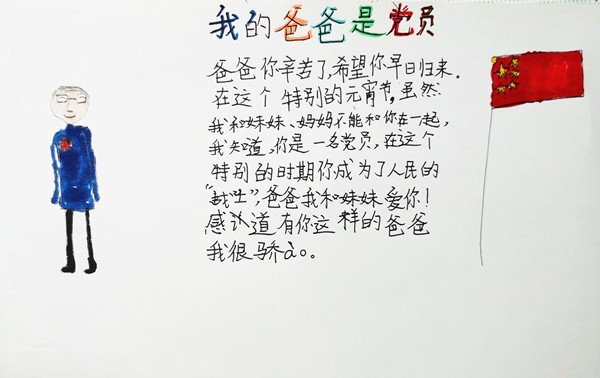 我的爸爸是党员
爸爸你辛苦了,希望你早日归来.
在这个特别的元宵节,虽然
我和妹妹、妈妈不能和你在一起,
我知道,你是一名党员,在这个
特别的时期你成为了人民的
“战士”,爸爸我和妹妹爱你!
感认道有你这样的爸爸
我很骄ào。